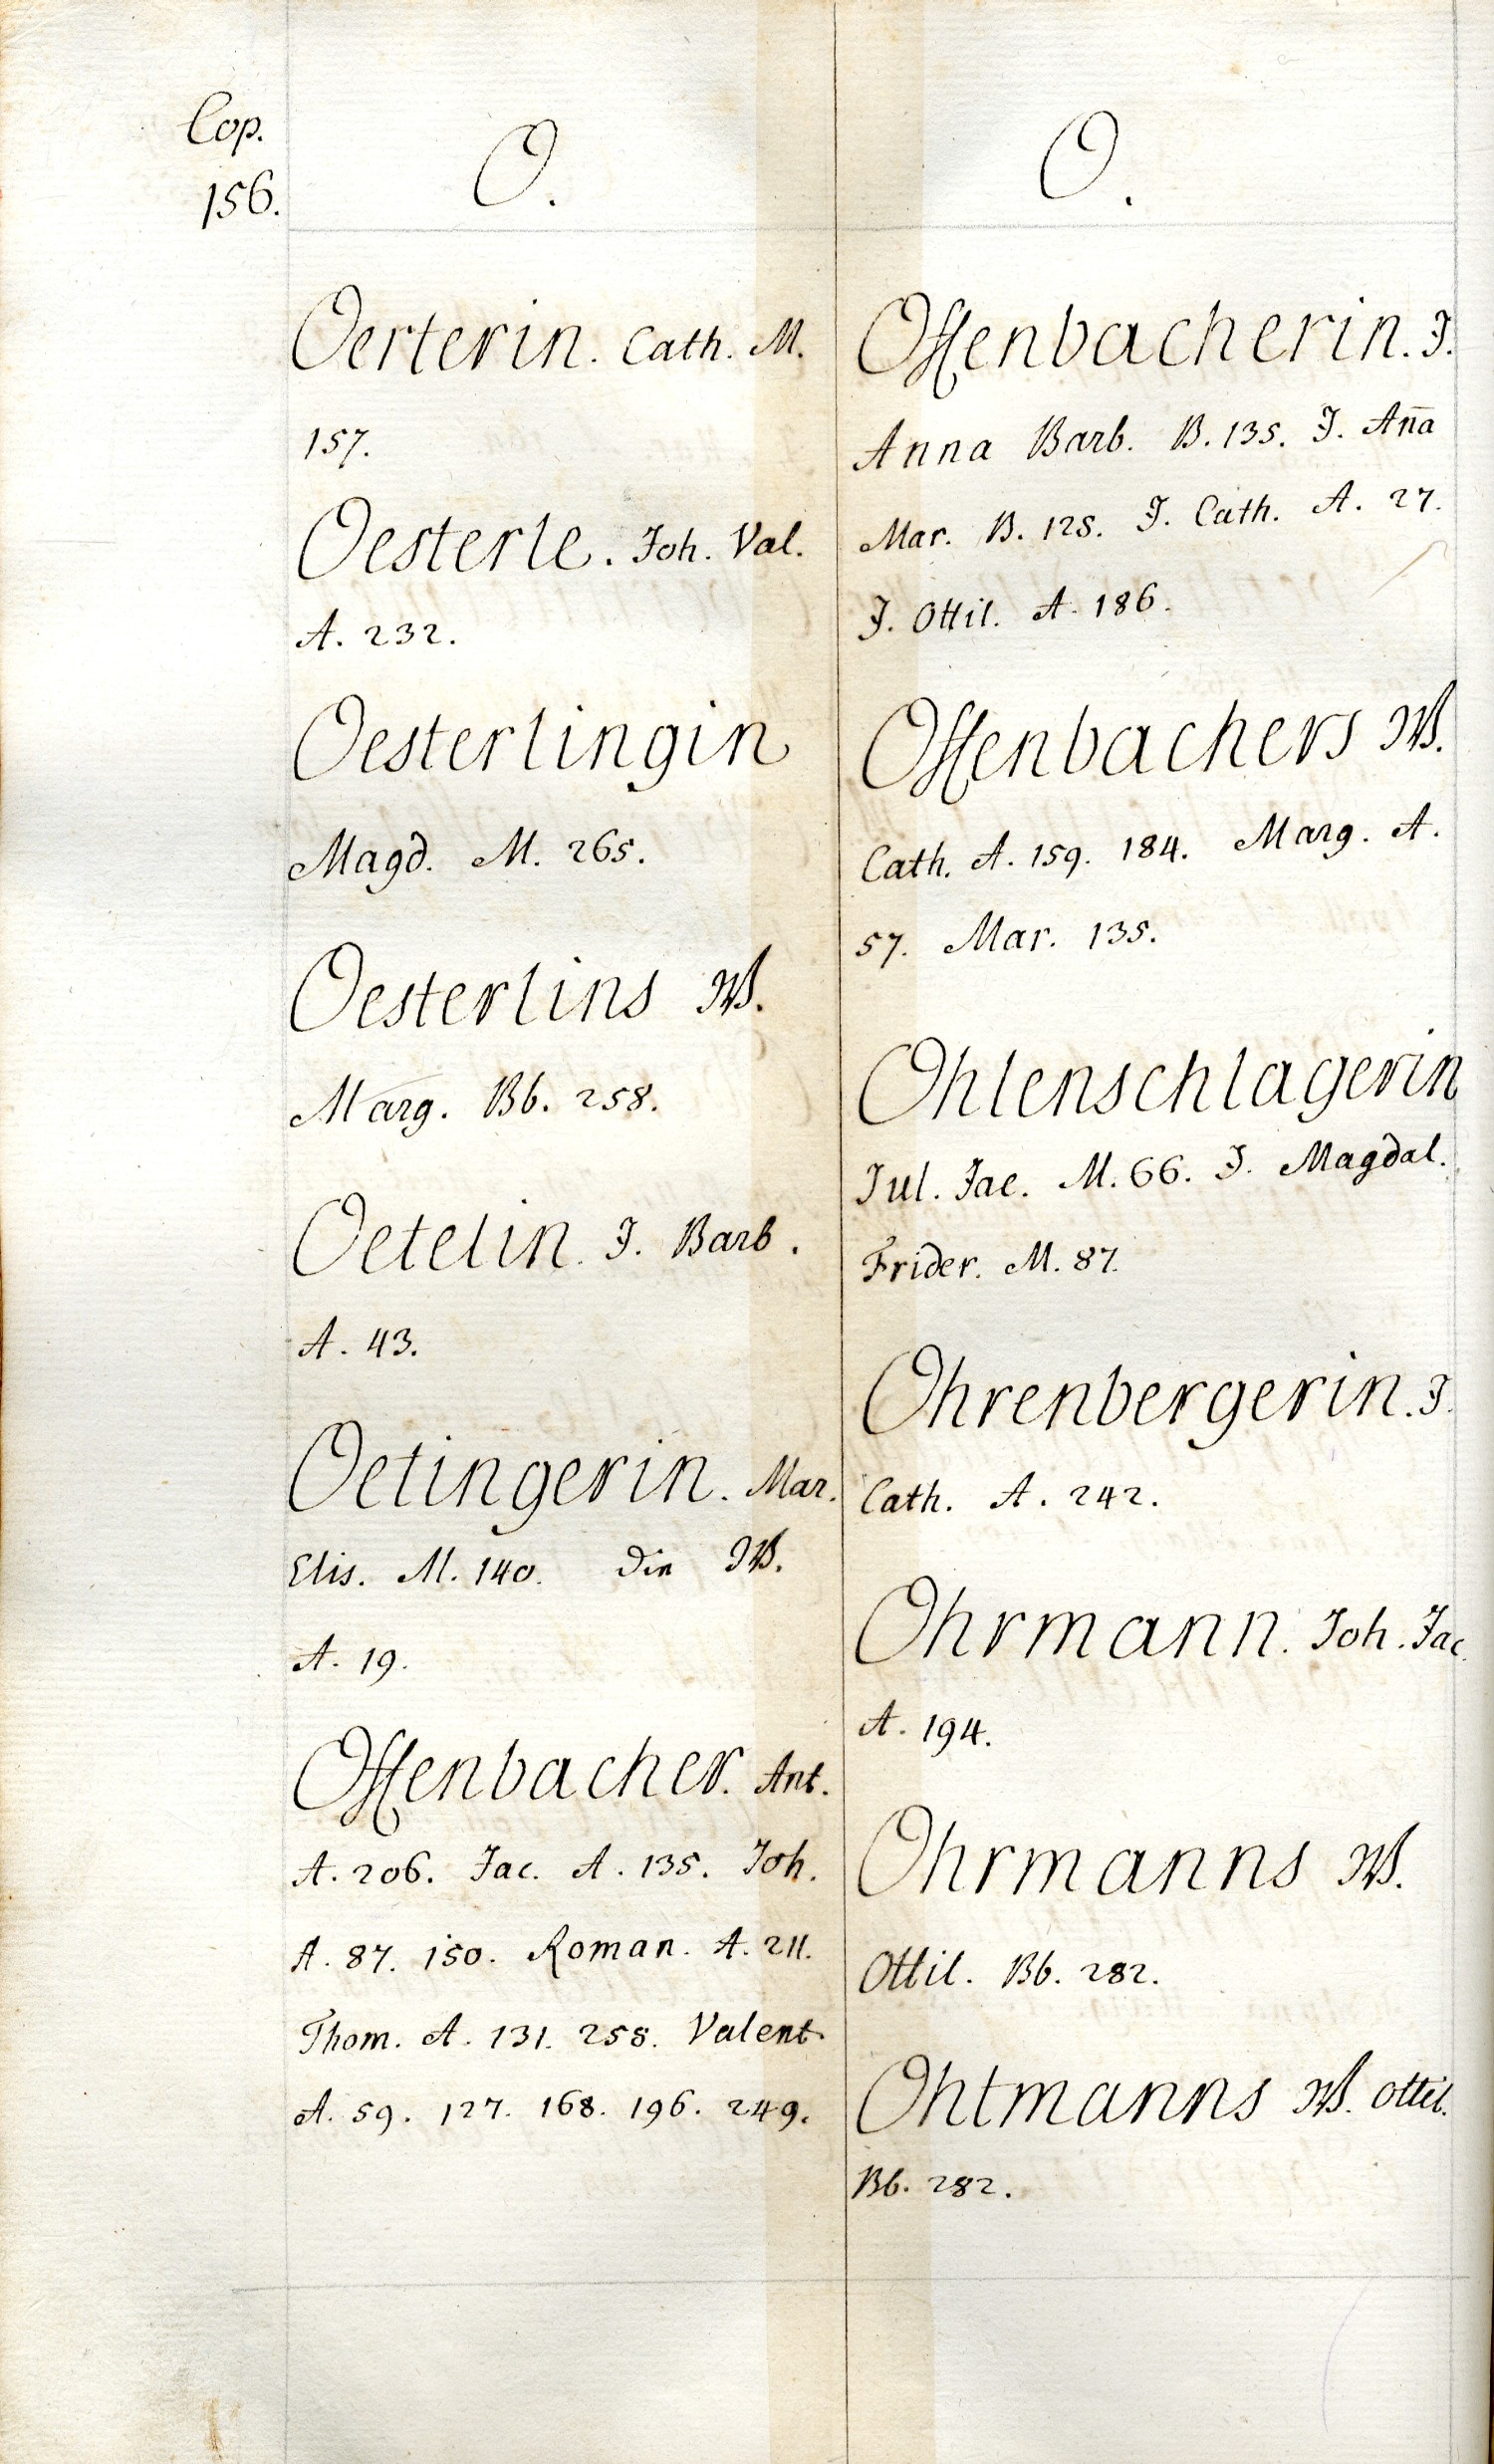 Cop.
156.
O.
Oerterin. Cath. M.
157.
Oesterle. Joh. Val.
A. 232.
Oesterlingin
Magd. M. 265.
Oesterlins W.
Marg. Bb. 258.
Oetelin. J. Barb.
A. 43.
Oetingerin. Mar.
Elis. M. 140. die W.
A. 19.
Offenbacher. Ant.
A. 206. Jac. A. 135. Joh.
A. 87. 150. Roman. A. 211.
Thom. A. 131. 258. Valent.
A. 59. 127. 168. 196. 249.
O.
Offenbacherin. J.
Anna Barb. B. 135. J. An̄a
Mar. B. 128. J. Cath. A. 27.
J. Ottil. A. 186.
Offenbachers W.
Cath. A. 159. 184. Marg. A.
57. Mar. 135.
Ohlenschlagerin
Jul. Jac. M. 66. J. Magdal.
Frider. M. 87.
Ohrenbergerin. J.
Cath. A. 242.
Ohrmann. Joh. Jac.
A. 194.
Ohrmanns W.
Ottil. Bb. 282.
Ohtmanns W. Ottil.
Bb. 282.